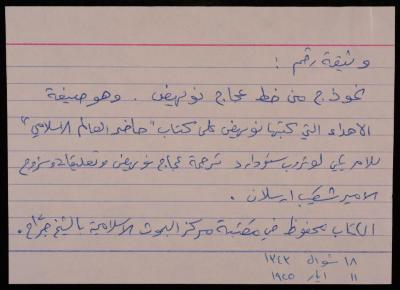 وثيقة رقم :
نموذج من خط عجاج نويهض . وهو صيغة
الاهداء التي كتبها نويهض على كتاب "حاضر العالم الاسلامي"
للامريكي لوثروب ستودارد ترجمة عجاج نويهض وتعليقات وشروح
الامير شكيب ارسلان .
الكتاب محفوظ في مكتبة مركز البحوث الاسلامية بالشيخ جراح .
١٨ شوال ١٣٤٣
١١ ايار ١٩٢٥